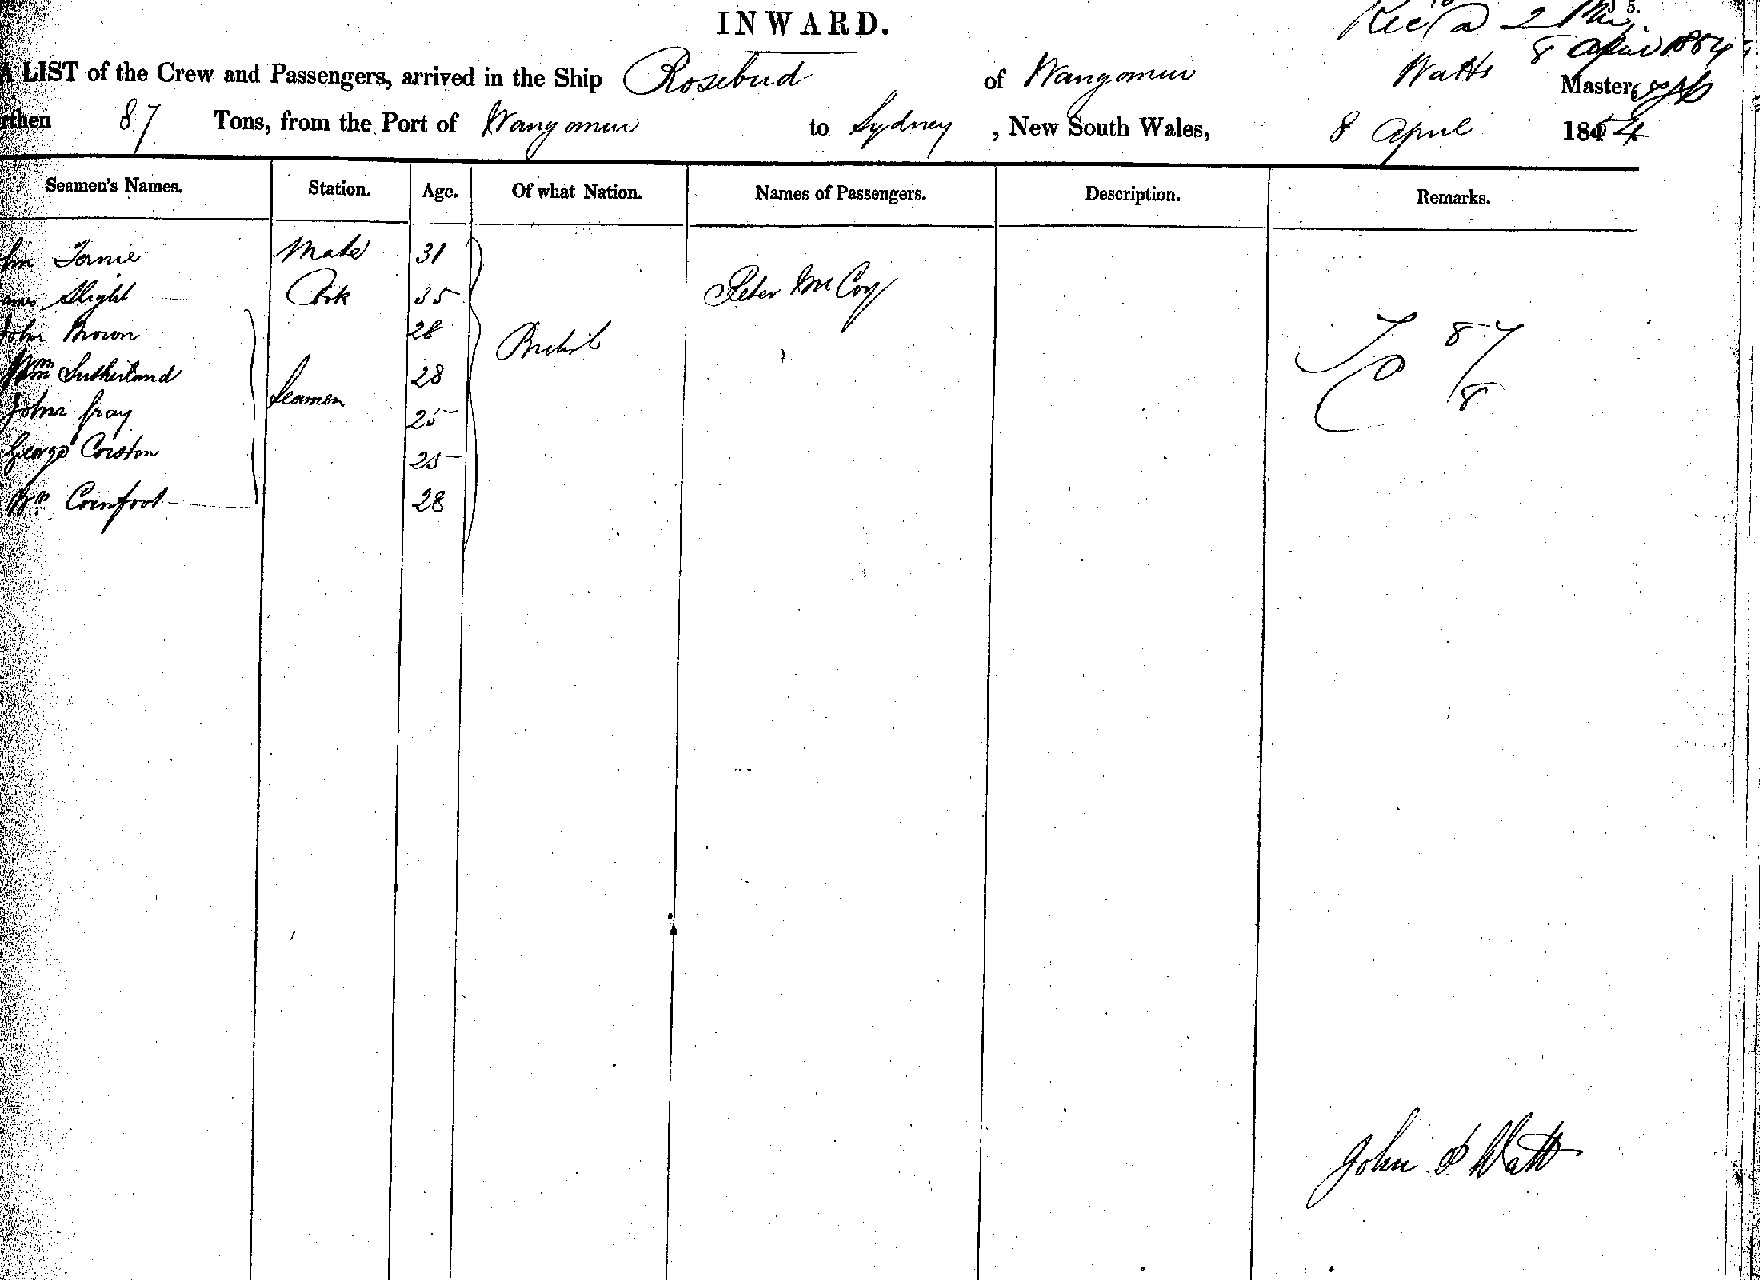 INWARD.
Rec'd
8 April 1854
A LIST of the Crew and Passengers, arrived in the Ship Rosebud of Wangonui Watts Master,
rthen 87 Tons, from the Port of Wangonui to Sydney , New South Wales, 8 April 1854
Seamen's Names. Station. Age. Of what Nation. Names of Passengers. Description. Remarks.
Mate 31
Slight 35 Peter McCoy
John Brown 28 British 87
Wm Sutherland 28
John Gray Seamen 25 8
George Corston 25
Wm Cornfoot 28
John S Watt